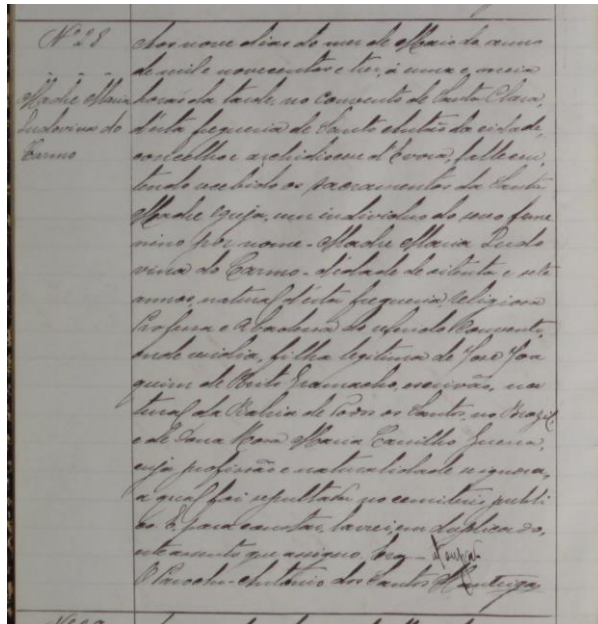 Nº 28
Madre Maria
Ludovina do
Carmo
Aos nove dias do mez de Maio do anno
de mil e novecentos e tres, á uma e meia
horas da tarde, no convento de Santa Clara,
d'esta freguezia de Santo Antão da cidade,
concelho e archidiocese d'Evora, falleceu,
tendo recebido os sacramentos da Santa
Madre Egreja, um individuo do sexo feme
nino por nome - Madre Maria Ludo
vina do Carmo - d'idade de oitenta e sete
annos, natural d'esta freguezia, religiosa
Professa e Abbadessa do referido Convento,
onde residia, filha legitima de José Joa
quim de Brito Gramacho, escrivão, na
tural da Bahia de Todos os Santos, no Brazil,
e de Dona Rosa Maria Guerra,
cuja profissão e naturalidade se ignora,
a qual foi sepultada no cemiterio publi
co. E para constar, lavrei, em duplicado,
este assento que assigno. Era -
O Parocho - Antonio dos Santos